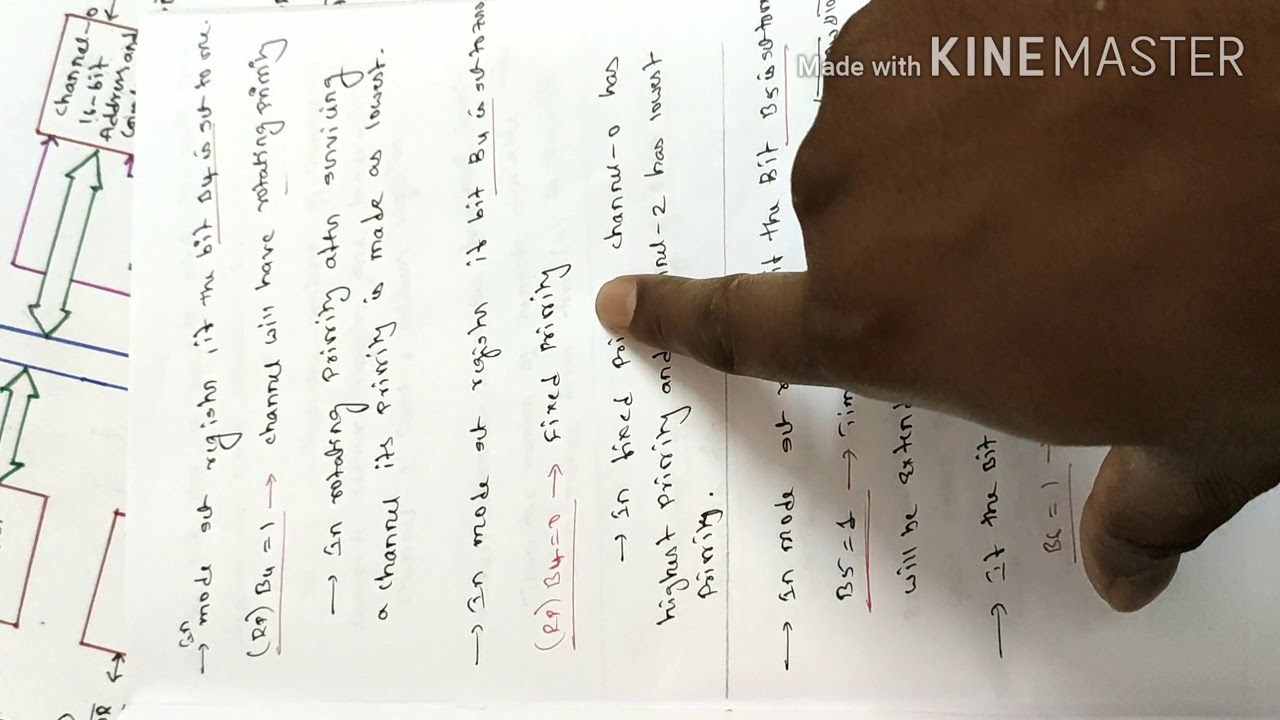 Made with KINEMASTER
channel-0
16-bit
Address and
→ In mode set register if the bit B4 is set to one.
(RP) B4=1 → channel will have rotating priority
→ In rotating priority after servicing
a channel its priority is made as lowest.
→ In mode set register if bit B4 is set to zero
(RP) B4=0 → Fixed priority
→ In fixed channel-0 has
highest priority and has lowest
priority.
→ In mode set the Bit B5 is set to
B5=1 →
will be
→ If the Bit
B6=1